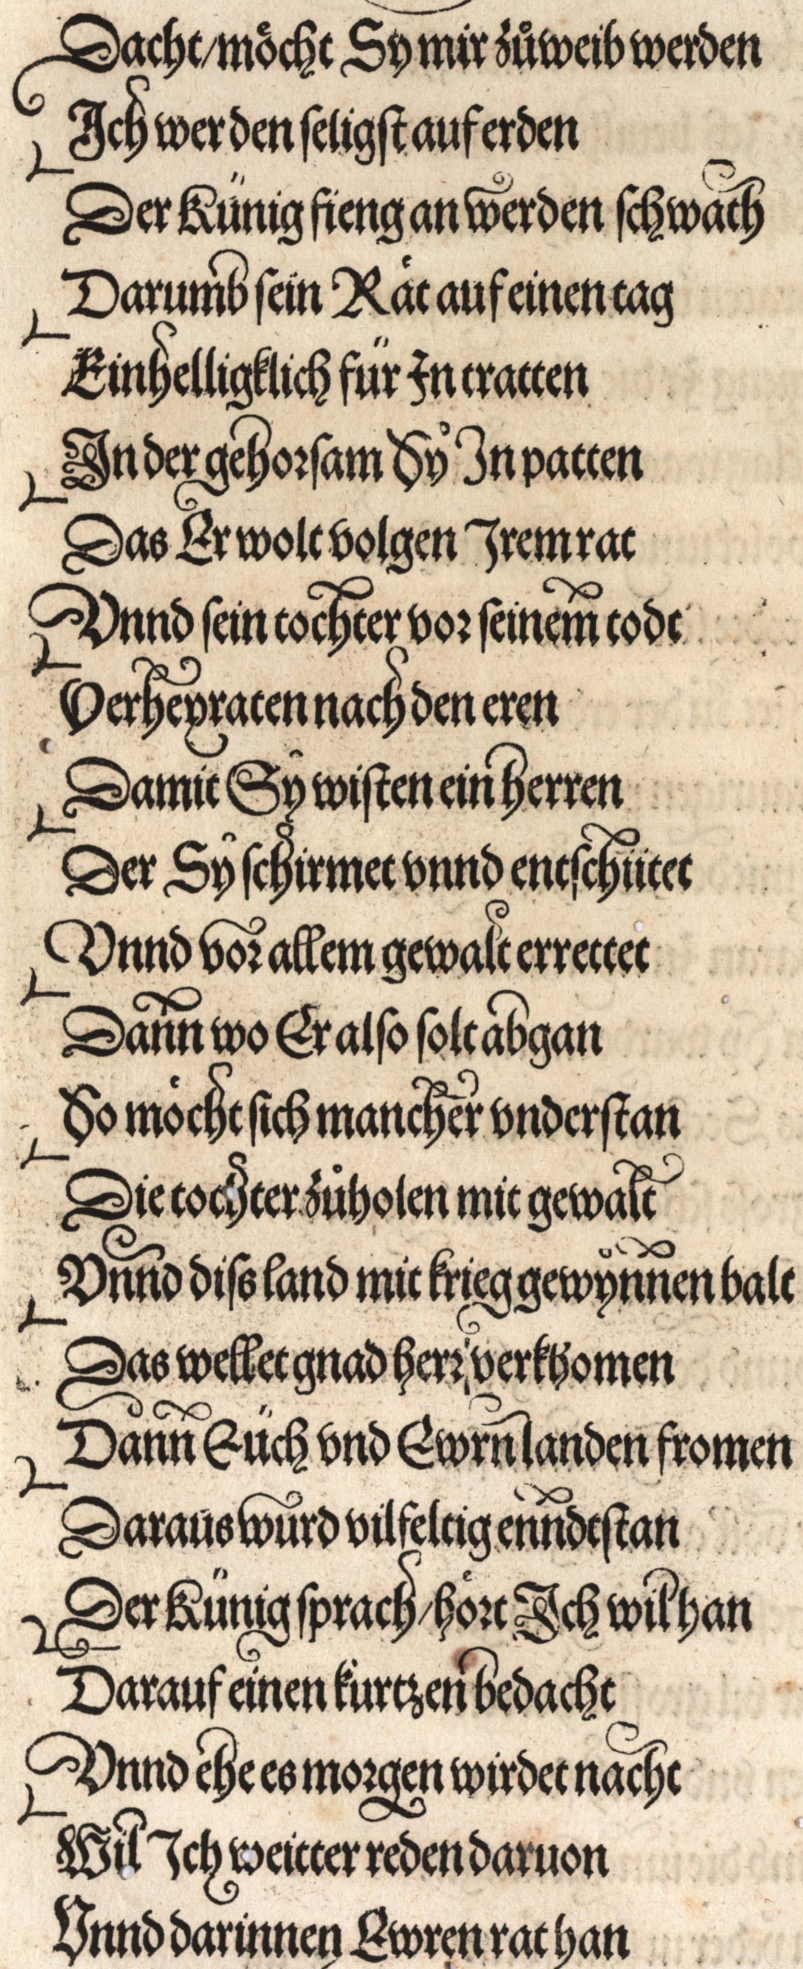 Dacht/möcht Sy mir zůweib werden
Ich wer den seligst auf erden
Der Künig fieng an werden schwach
Darumb sein Rät auf einen tag
Einhelligklich für In tratten
In der gehorsam Sy In patten
Das Er wolt volgen Irem rat
Vnnd sein tochter vor seinem todt
Verheyraten nach den eren
Damit Sy wisten ein herren
Der Sy schirmet vnnd entschütet
Vnnd vor allem gewalt errettet
Dann wo Er also solt abgan
So möcht sich mancher vnderstan
Die tochter zůholen mit gewalt
Vnnd diss land mit krieg gewynnen balt
Das wellet gnad herr verkhomen
Dann Eüch vnd Ewrn landen fromen
Daraus wurd vilfeltig enndtstan
Der Künig sprach/hört Ich wil han
Darauf einen kurtzen bedacht
Vnnd ehe es morgen wirdet nacht
Wil Ich weitter reden daruon
Vnnd darinnen Ewren rat han